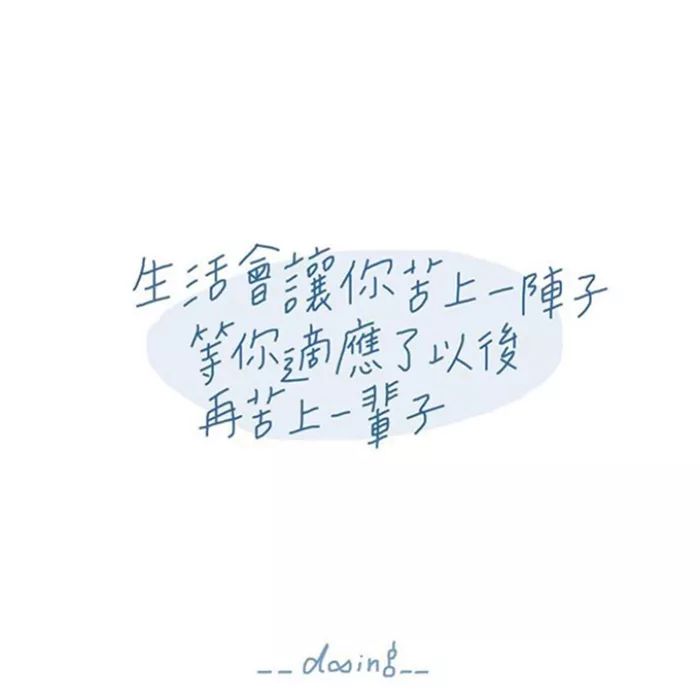 生活會讓你苦上一陣子
等你適應了以後
再苦上一輩子
__dosing__